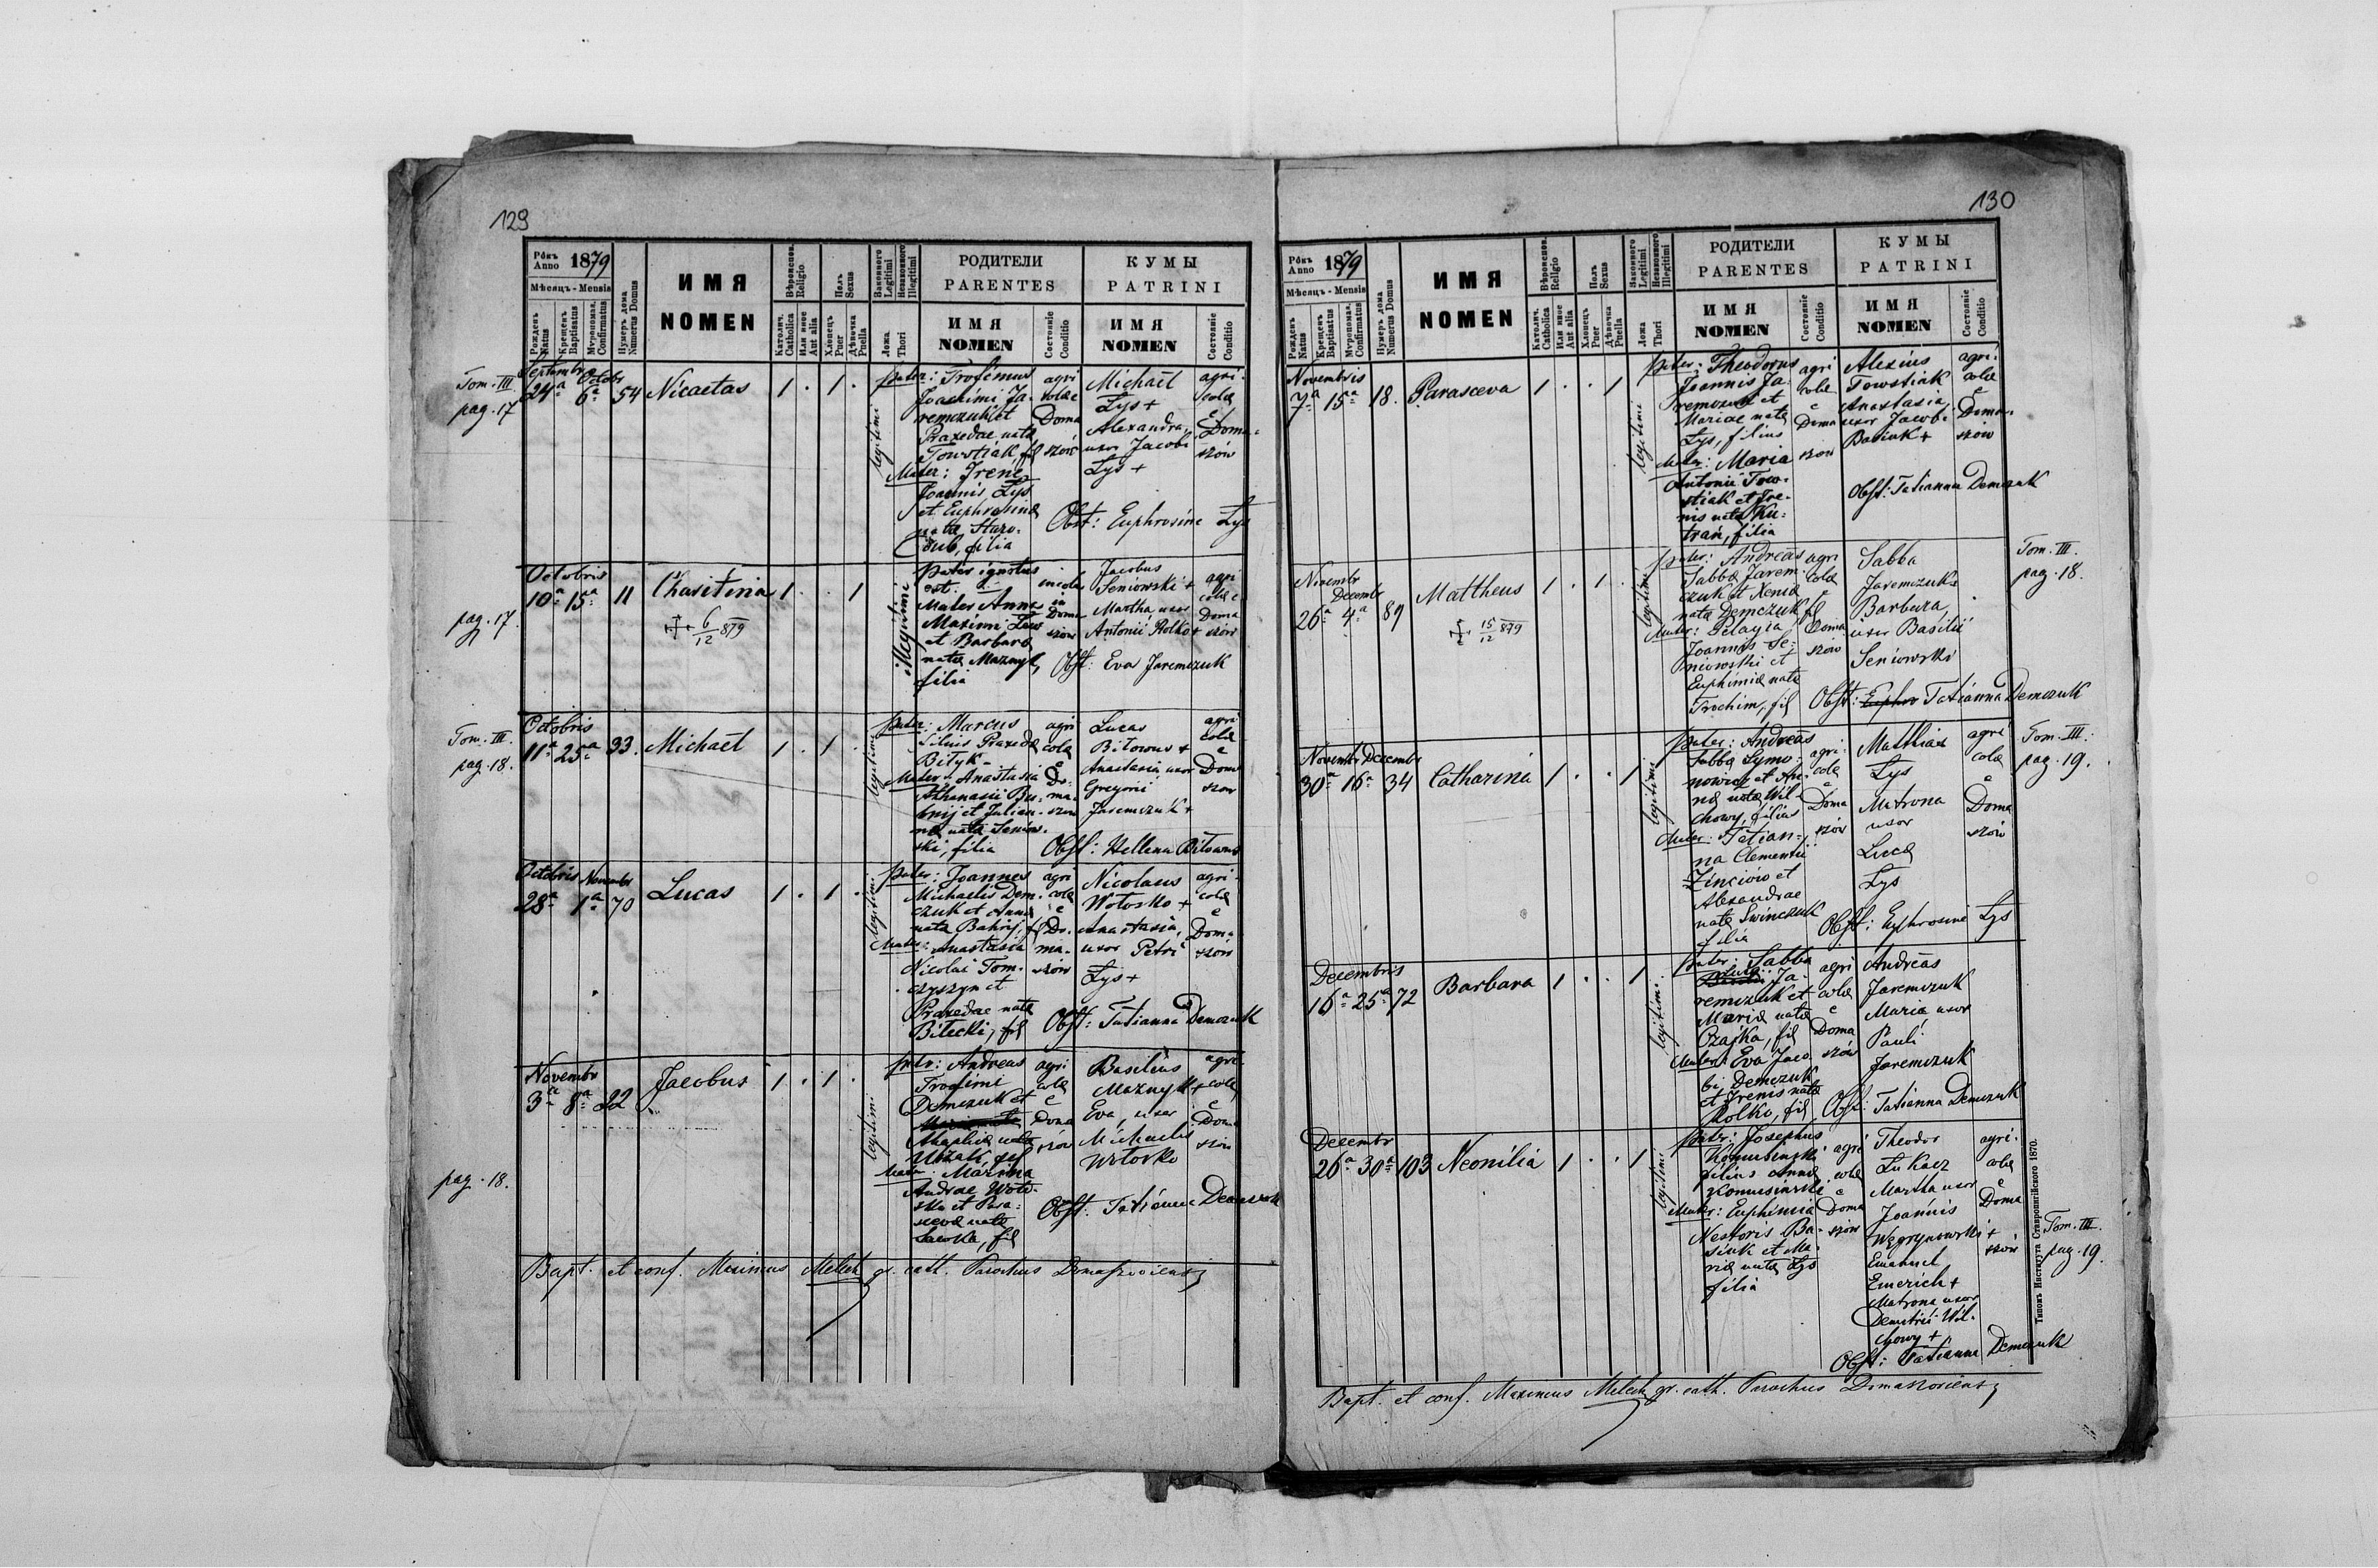 129
Рôкъ Anno 1879
Мѣсяцъ - Mensis
Рожденъ Natus
Крещенъ Baptisatus
Мѵропомаз. Confirmatus
Нумеръ дома Numerus Domus
ИМЯ
NOMEN
Вѣроиспов. Religio
Католич. Catholica
Или иное Aut alia
Полъ Sexus
Хлопецъ Puer
Дѣвочка Puella
Законного Legitimi
Незаконного Illegitimi
Ложа Thori
РОДИТЕЛИ
PARENTES
ИМЯ
NOMEN
Состоянiе Conditio
КУМЫ
PATRINI
ИМЯ
NOMEN
Состоянiе Conditio
Tom. III.
pag. 17
Septembr Octobr
24ª 6ª 54 Nicaetas 1 . 1 .
legitimi
pater: Trofimus
Joachimi Ja-
remczuk et
Praxedae nata
Towstiak, fil
Mater: Irene
Joannis Lys
et Euphrosina
nata Staro-
dub, filia
agri
colae
e
Doma
szów
Michaël
Lys +
Alexandra,
uxor Jacobi
Lys +
agri-
colae
e
Doma-
szów
Obst: Euphrosine Lys
pag. 17.
Octobris
10ª 15ª 11 Charitina 1 . . 1
6/12 879
illegitimi
Pater ignotus
est.
Mater Anna
Maximi
et Barbara
nata Maznyk,
filia
incola
in
Doma
szów
Jacobus
Seniowski +
Martha uxor
Antonii Rolko +
agri
colae
Doma
szów
Obst: Eva Jaremczuk
Tom. III.
pag. 18.
Octobris
11ª 25ª 33. Michaël 1 . 1 .
legitimi
pater: Marcus
filius Praxeda
Bityk -
Mater: Anastasia
Athanasii Ba-
hrij et Julian-
na nata Seniow-
ski, filia
agri
colae
e
Do-
ma-
szów
Lucas
Bitowus +
Anastasia uxor
Gregorii
Jaremczuk +
agri
colae
e
Doma
szow
Obst: Hellena Bitowus
Octobris Novembr
28ª 1ª 70 Lucas 1 . 1 .
legitimi
pater: Joannes
Michaelis Dem-
czuk et Anna
nata Bahrij, f
Mater: Anastasia
Nicolai Tom-
czyszyn et
Praxedae nata
Bilecki, fil
agri
colae
e
Do-
ma-
szów
Nicolaus
Wotosko +
Anastasia,
uxor Petri
Lys +
agri-
colae
e
Doma
szów
Obst: Tatianna Demczuk
pag. 18.
Novembr
3ª 8ª 22 Jacobus 1 . 1 .
legitimi
pater: Andreas
Trofimi
Demczuk et
Ahaphia nata
fil
Mater: Marina
Andreae Woto-
sko et Para-
sceva nata
Sawka, fil
agri
colae
e
Doma
szów
Basilius
Maznyk +
Eva, uxor
Michaelis
Wotosko
agri-
colae
e
Doma
szów
Obst: Tatianna Demczuk
Bapt. et conf. Maximus Melech gr. cath. Parochus Domaszoviensis
130
Рôкъ Anno 1879
Мѣсяцъ - Mensis
Рожденъ Natus
Крещенъ Baptisatus
Мѵропомаз. Confirmatus
Нумеръ дома Numerus Domus
ИМЯ
NOMEN
Вѣроиспов. Religio
Католич. Catholica
Или иное Aut alia
Полъ Sexus
Хлопецъ Puer
Дѣвочка Puella
Законного Legitimi
Незаконного Illegitimi
Ложа Thori
РОДИТЕЛИ
PARENTES
ИМЯ
NOMEN
Состоянiе Conditio
КУМЫ
PATRINI
ИМЯ
NOMEN
Состоянiе Conditio
Novembris
7ª 15ª 18. Parasceva 1 . . 1
legitimi
pater: Theodorus
Joannis Ja-
remczuk et
Mariae nata
Lys, filius
Mater: Maria
Antonii Tow-
stiak et Ire-
nis nata Ku-
tran, filia
agri
colae
e
Doma
szow
Alexius
Towstiak
Anastasia
uxor Jacobi
Basiuk +
agri-
colae
e
Doma-
szów
Obst: Tatianna Demczuk
Tom. III.
pag. 18.
Novembr
Decembr
26ª 4ª 89 Mattheus 1 . 1 .
15/12 879
legitimi
pater: Andreas
Sabba Jarem-
czuk et Xenia
nata Demczuk fil
Mater: Pelagia
Joannis Se-
niowski et
Euphimia nata
Trochim, fil
agri
colae
e
Doma
szów
Sabba
Jaremczuk
Barbara,
uxor Basilii
Seniowski
Obst: Euphro Tatianna Demczuk
Tom. III.
pag. 19.
Novembr Decembr
30ª 16ª 34 Catharina 1 . . 1
legitimi
pater: Andreas
Sabba Symo-
nowicz et An-
na nata Wil-
chowy, filius
Mater: Tatian-
na Clementii
Zinciów et
Alexandrae
nata Swinczuk
filia
agri-
colae
e
Doma
szów
Matthias
Lys
Matrona
uxor
Luca
Lys
agri
colae
e
Doma
szów
Obst: Euphrosine Lys
Decembris
16ª 25ª 72 Barbara 1 . . 1
legitimi
pater: Sabba
Ja-
remczuk et
Maria nata
Czajka, fil
Mater: Eva Jaco-
bi Demczuk
et Irenis nata
Rolko, fil
agri
colae
e
Doma
szów
Andreas
Jaremczuk
Maria uxor
Pauli
Jaremczuk
Obst: Tatianna Demczuk
Decembr
26ª 30ª 103 Neonilia 1 . . 1
legitimi
pater: Josephus
Komusinski
filius Anna
Komusinski
Mater: Euphimia
Nestoris Ba-
siuk et Ma-
ria nata Lys
filia
agri
colae
e
Doma
szów
Theodor
Lukacz
Martha uxor
Joannis
Węgrynowski +
Emanuel
Emerich +
Matrona uxor
Demetrii Wil-
chowy +
agri-
colae
e
Doma
szów
Obst: Tatianna Demczuk
Tom. III.
pag. 19.
Bapt. et conf. Maximus Melech gr. cath. Parochus Domaszoviensis
Типомъ Института Ставропигiйского 1870.